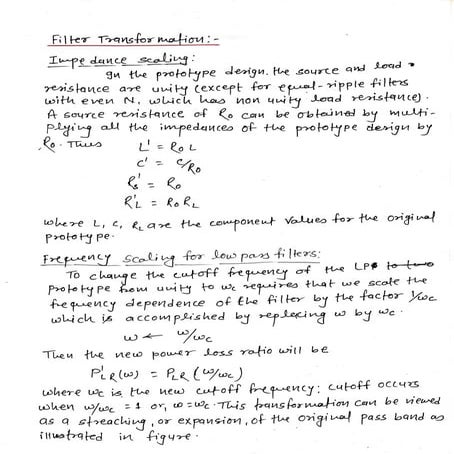 Filter Transformation:-
Impedance scaling:
In the prototype design. the source and load
resistance are unity (except for equal-ripple filters
with even N, which has non unity load resistance).
A source resistance of R₀ can be obtained by multi-
plying all the impedances of the prototype design by
R₀. Thus L' = R₀L
C' = C/R₀
R's = R₀
R'L = R₀RL
where L, C, RL are the component values for the original
prototype.
Frequency scaling for low pass filters:
To change the cutoff frequency of the LP to two
prototype from unity to wc requires that we scale the
frequency dependence of the filter by the factor 1/wc
which is accomplished by replecing w by wc.
w ← w/wc
Then the new power loss ratio will be
P'LR(w) = PLR (w/wc)
where wc is the new cutoff frequency; cutoff occurs
when w/wc = 1 or, w=wc. This transformation can be viewed
as a streaching, or expansion, of the original pass band as
illustrated in figure.